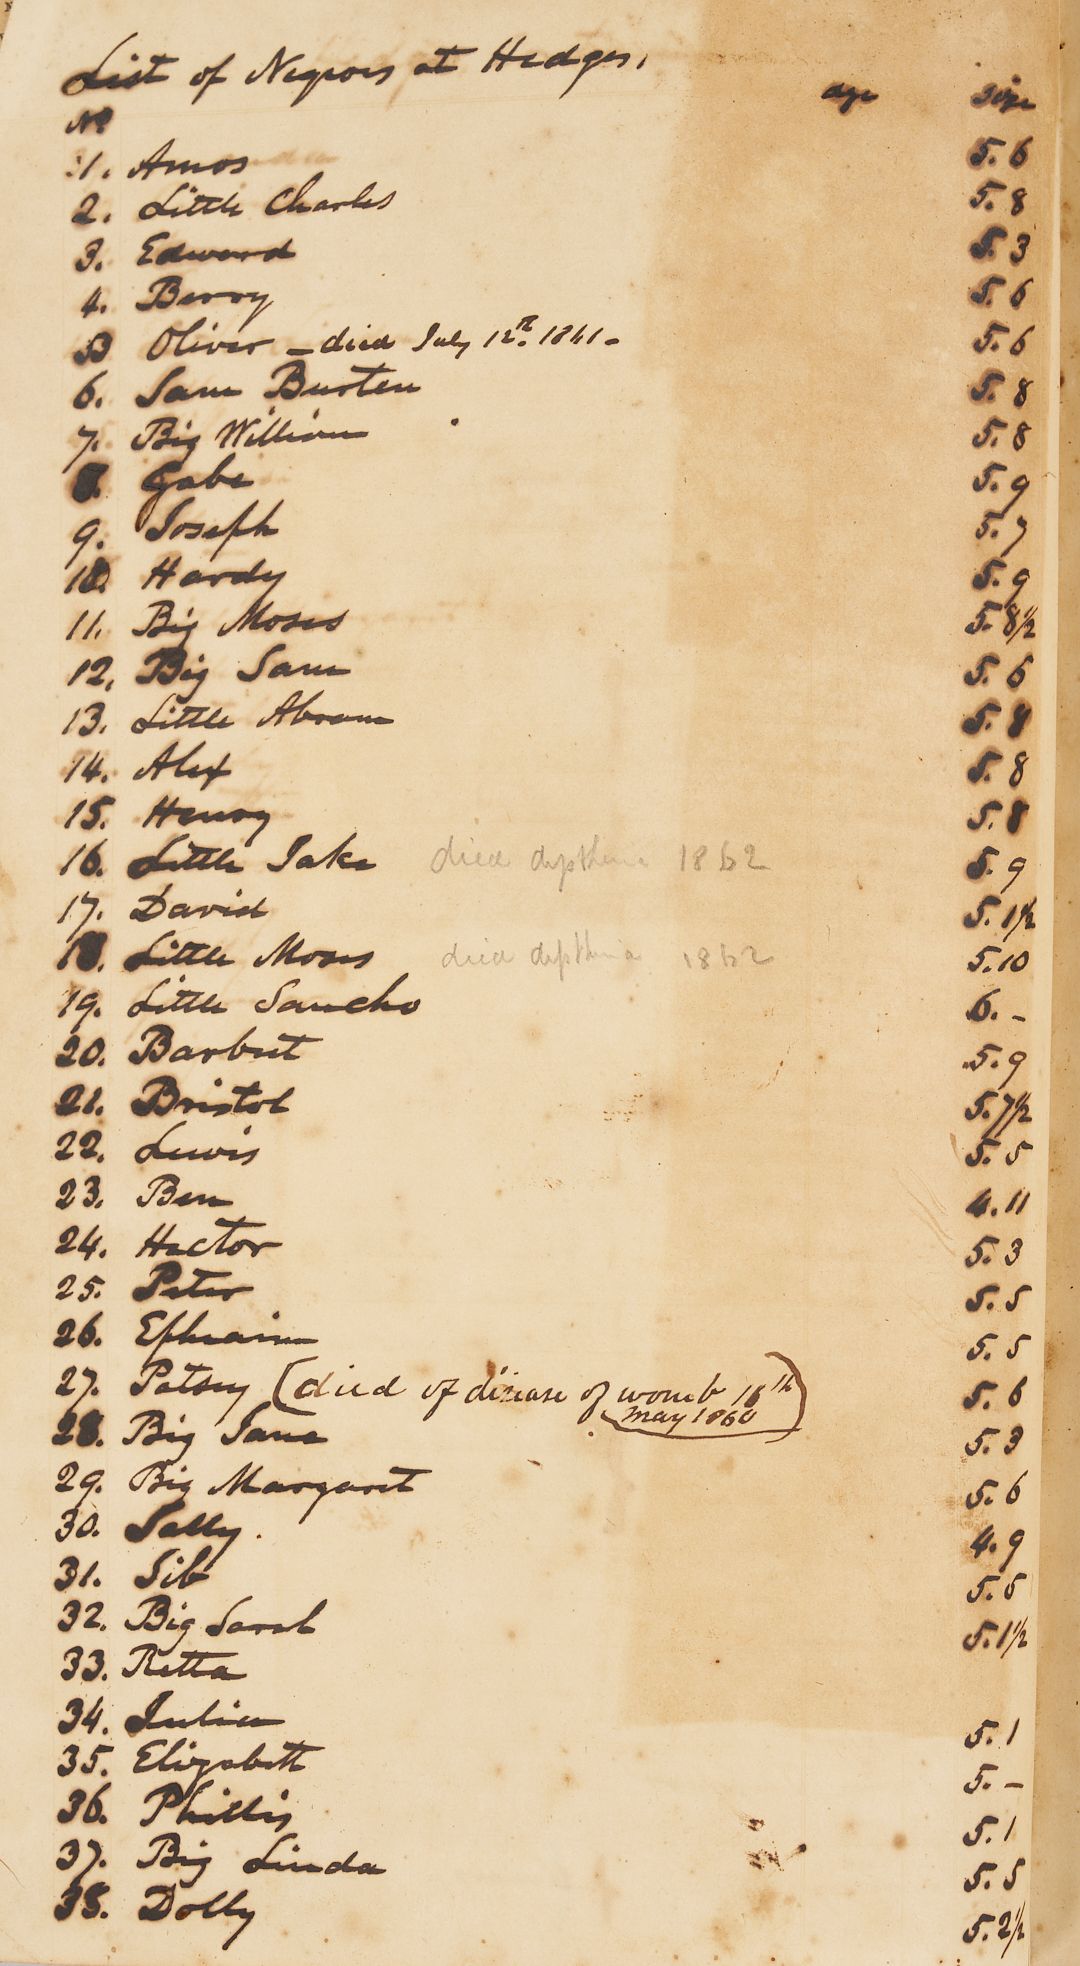 List of Negroes at Hedges,
No age size
1. Amos 5.6
2. Little Charles 5.8
3. Edward 5.3
4. Berry 5.6
5 Oliver – died July 12th. 1861 – 5.6
6. Sam Burten 5.8
7. Big William 5.8
8. Gabe 5.9
9. Joseph 5.7
10. Hardy 5.9
11. Big Moses 5.8½
12. Big Sam 5.6
13. Little Abram 5.8
14. Alex 5.8
15. Henry 5.8
16. Little Jake died dyptheria 1862 5.9
17. David 5.1½
18. Little Moses died diptheria 1862 5.10
19. Little Sancho 6.–
20. Barbut 5.9
21. Bristol 5.7½
22. Lewis 5.5
23. Ben 4.11
24. Hector 5.3
25. Peter 5.5
26. Ephraim 5.5
27. Patsey (died of disease of womb 18th May 1860) 5.6
28. Big Jane 5.3
29. Big Margaret 5.6
30. Sally. 4.9
31. Sib 5.5
32. Big Sarah 5.1½
33. Retta
34. Julia 5.1
35. Elizabeth 5.–
36. Phillis 5.1
37. Big Linda 5.5
38. Dolly 5.2½